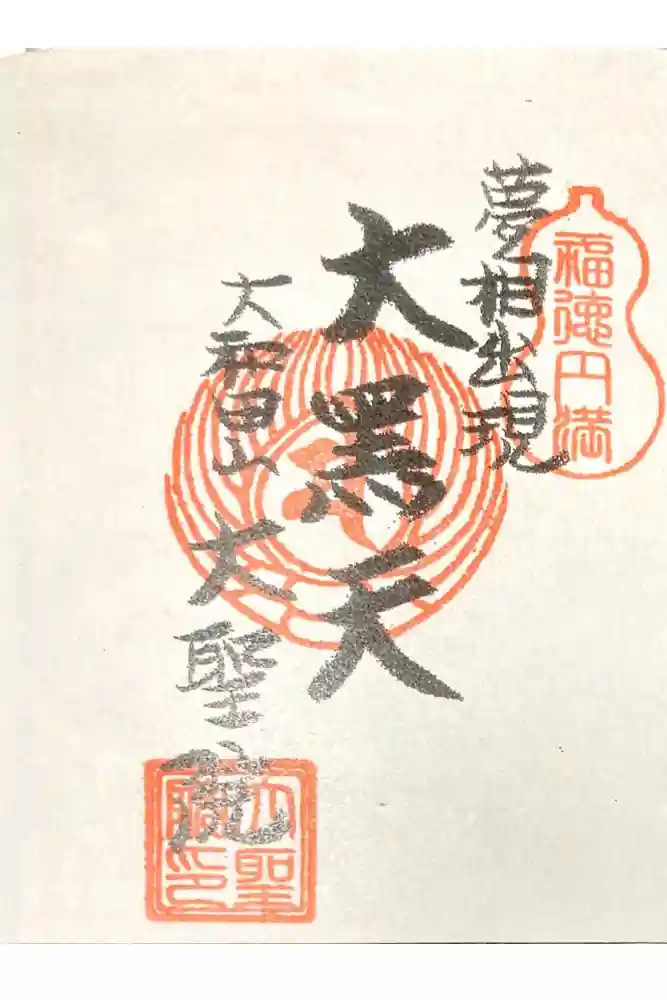 福徳円満
夢相出現
大黒天
大和田山
大聖院
大聖
院印